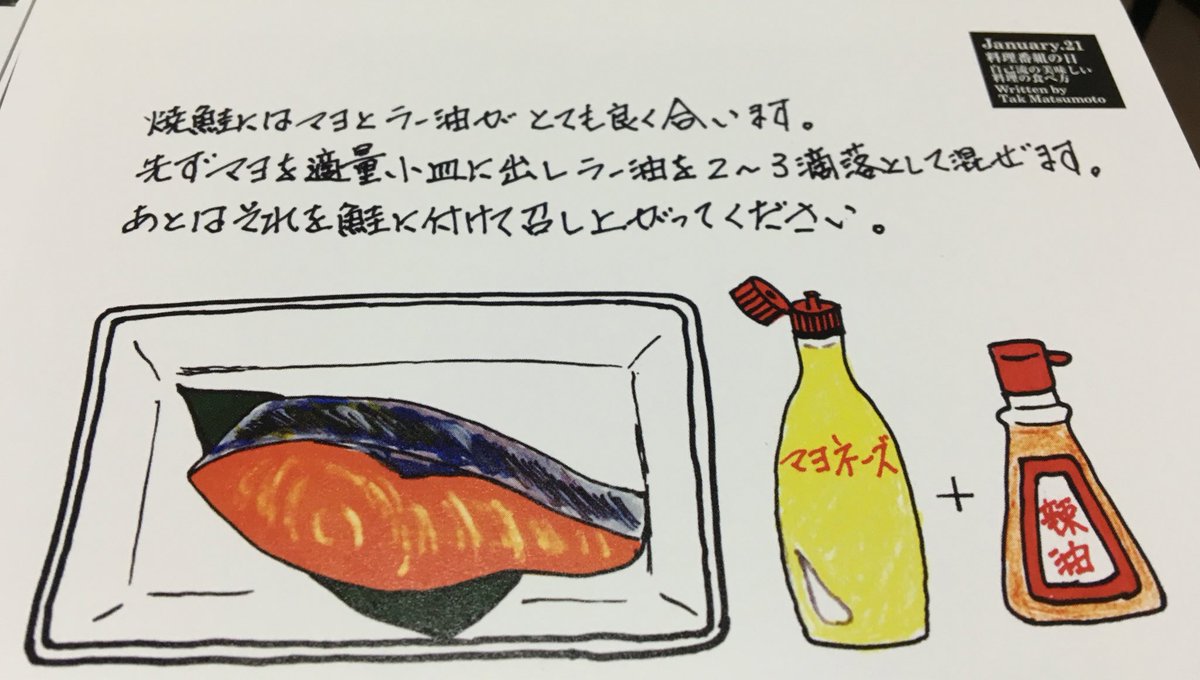 January.21
料理番組の日
自己流の美味しい
料理の食べ方
Written by
Tak Matsumoto
焼鮭にはマヨとラー油がとても良く合います。
先ずマヨを適量小皿に出しラー油を2〜3滴落として混ぜます。
あとはそれを鮭に付けて召し上がってください。
マヨネーズ
+
辣油